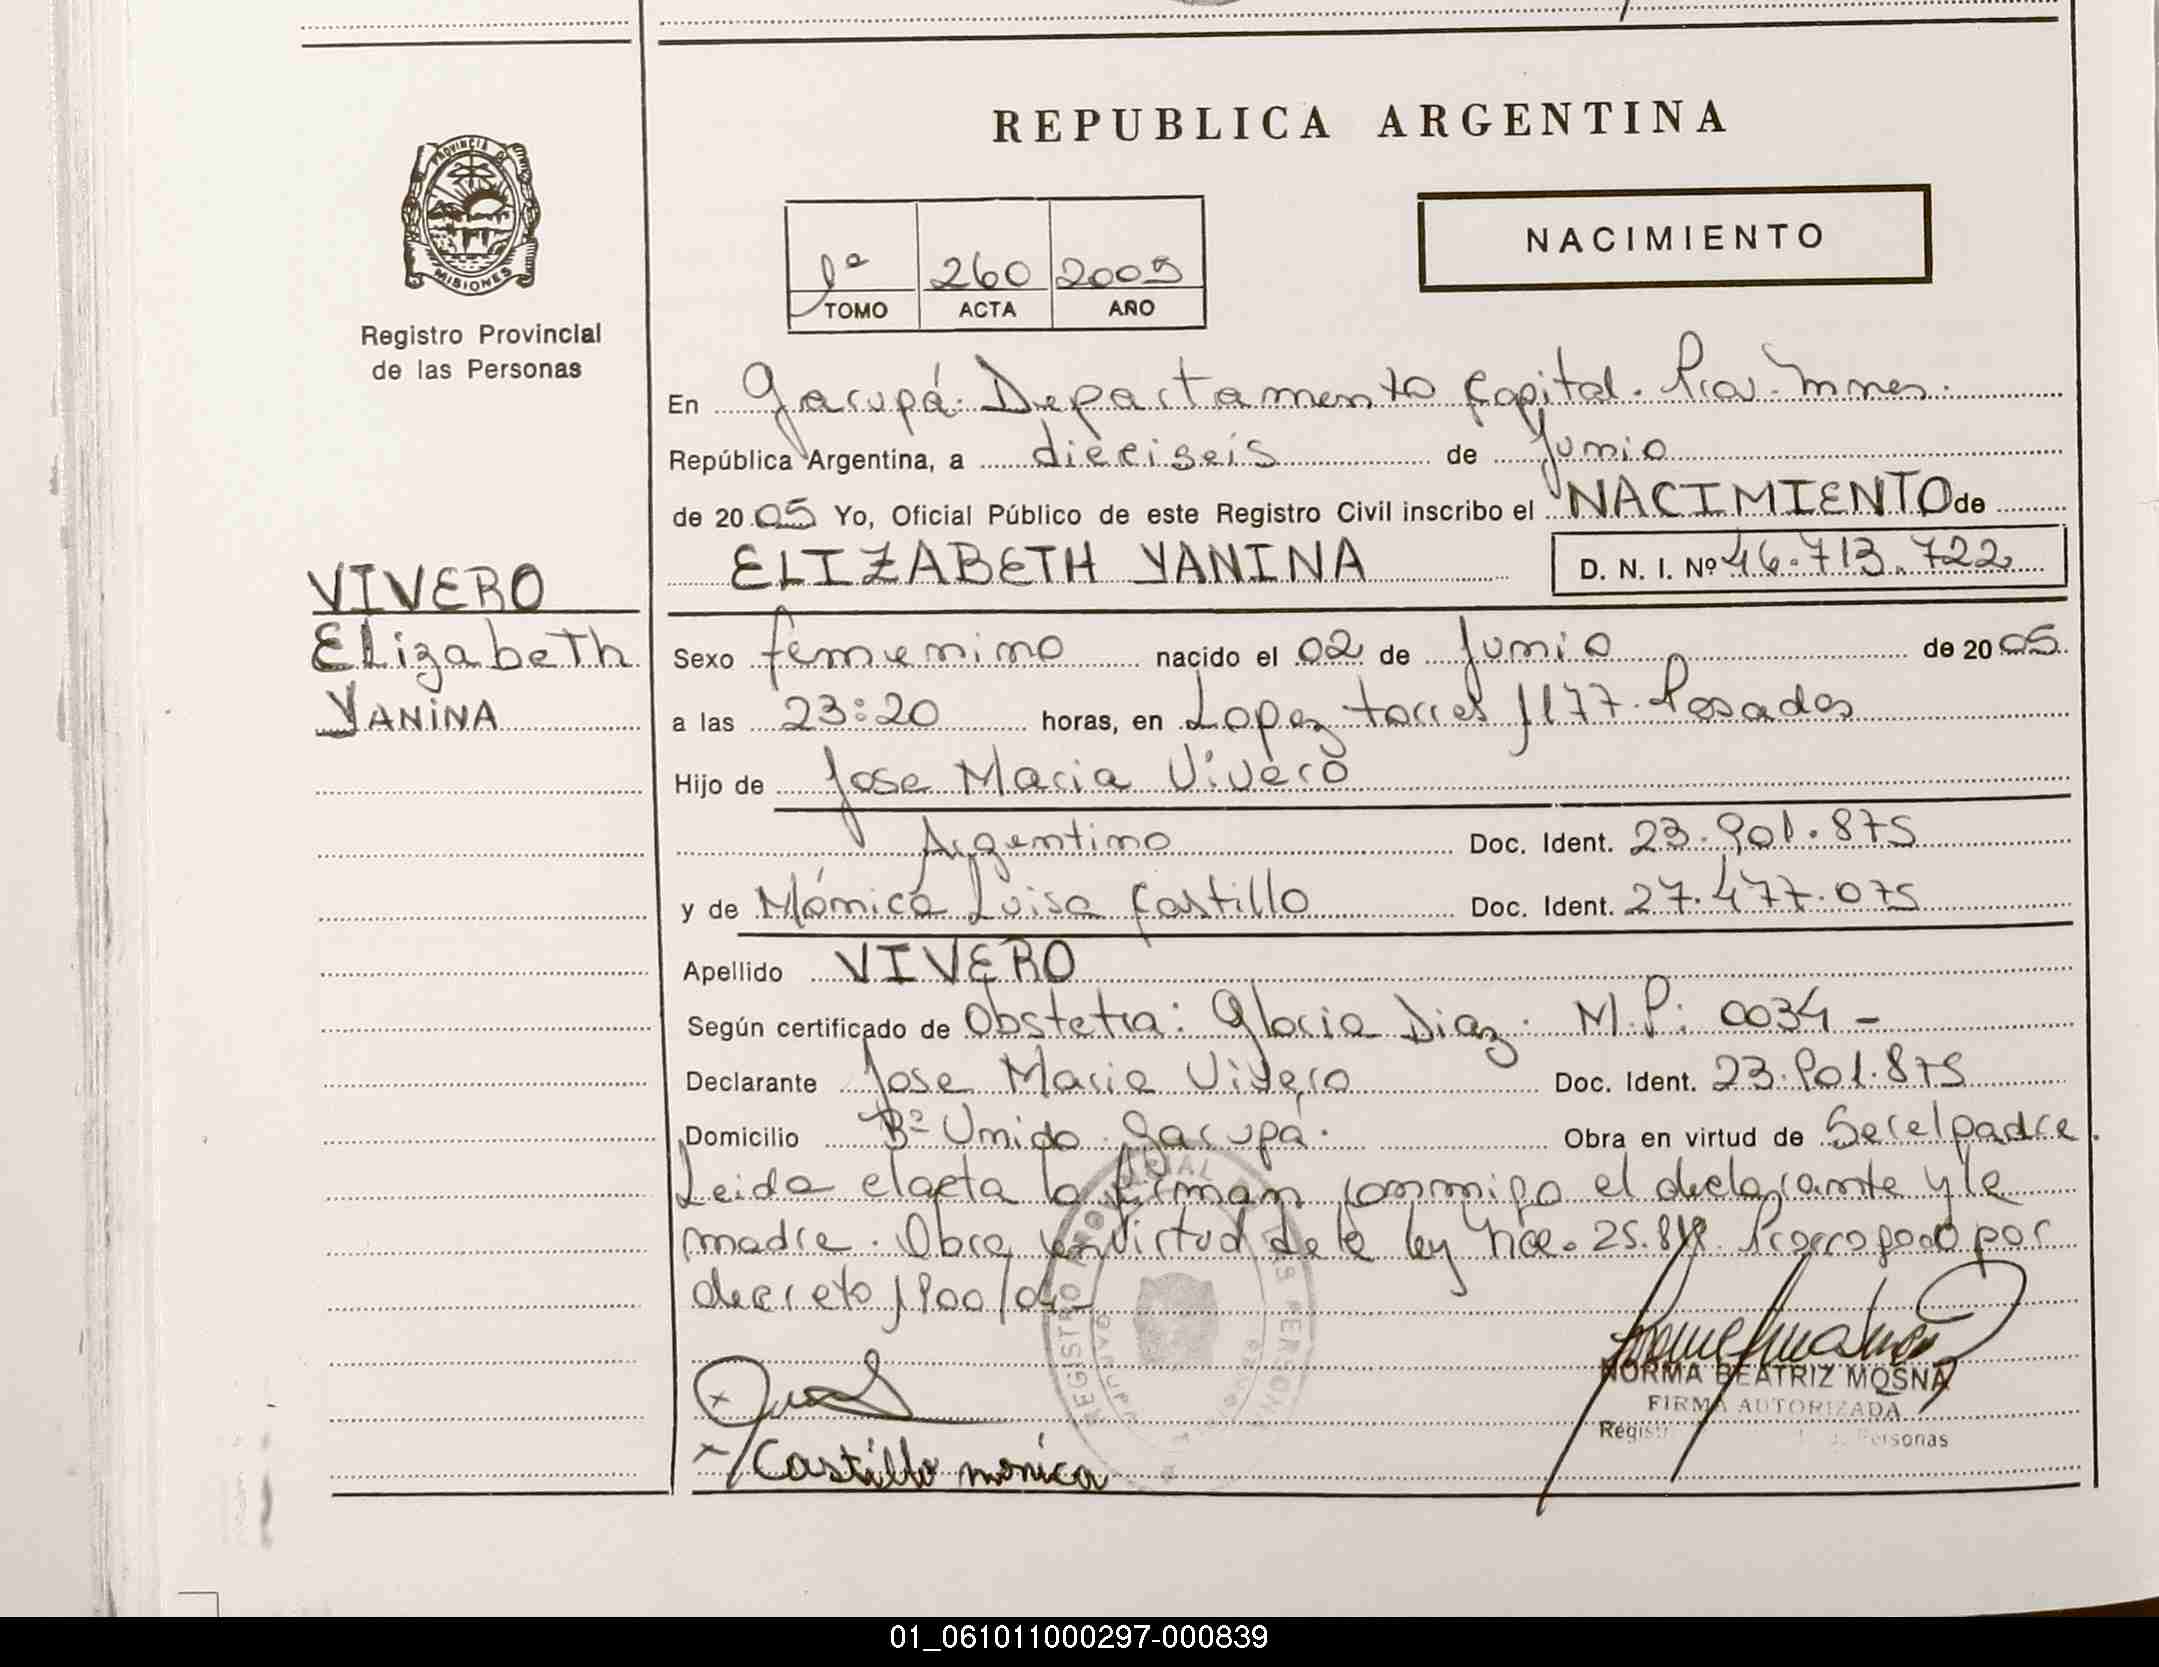 REPUBLICA ARGENTINA
PROVINCIA DE
MISIONES
Registro Provincial
de las Personas
1ª 260 2005
TOMO ACTA AÑO
NACIMIENTO
En Garupá. Departamento Capital. Prov. Mnes.
República Argentina, a dieciseis de Junio
de 2005 Yo, Oficial Público de este Registro Civil inscribo el NACIMIENTO de
ELIZABETH YANINA D. N. I. Nº 46.713.722
VIVERO
Elizabeth
YANINA
Sexo femenino nacido el 02 de Junio de 2005.
a las 23:20 horas, en Lopez torres 1177. Posadas
Hijo de Jose Maria Vivero
Argentino Doc. Ident. 23.901.875
y de Mónica Luisa Castillo Doc. Ident. 27.477.075
Apellido VIVERO
Según certificado de Obstetra: Gloria Diaz. M.P: 0034 -
Declarante Jose Maria Vivero Doc. Ident. 23.901.875
Domicilio Bº Unido. Garupá. Obra en virtud de Ser el padre.
Leida el acta la firman conmigo el declarante y la
madre. Obra en virtud de la ley nro. 25.819. Prorrogado por
decreto 1900/04-
REGISTRO PROVINCIAL DE LAS PERSONAS
NORMA BEATRIZ MOSNA
FIRMA AUTORIZADA
Personas
Castillo mónica
01_061011000297-000839